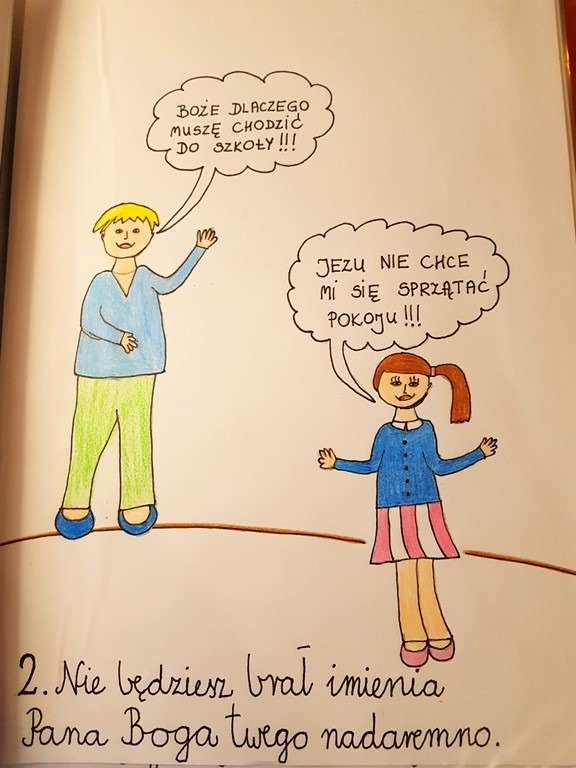 BOŻE DLACZEGO
MUSZĘ CHODZIĆ
DO SZKOŁY!!!
JEZU NIE CHCE
MI SIĘ SPRZĄTAĆ
POKOJU!!!
2. Nie będziesz brał imienia
Pana Boga twego nadaremno.